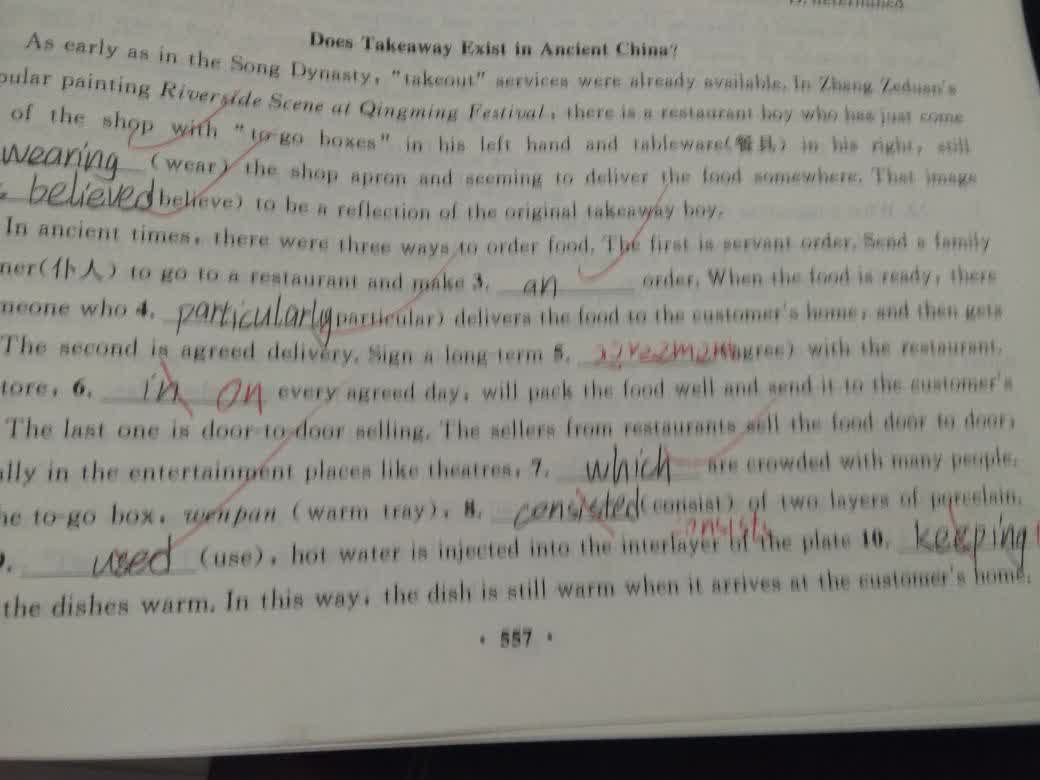 Does Takeaway Exist in Ancient China?
As early as in the Song Dynasty, "takeout" services were already available. In Zhang Zeduan's
pular painting Riverside Scene at Qingming Festival, there is a restaurant boy who has just come
of the shop with "to-go boxes" in his left hand and tableware(餐具) in his right, still
wearing (wear) the shop apron and seeming to deliver the food somewhere. That image
believed (believe) to be a reflection of the original takeaway boy.
In ancient times, there were three ways to order food. The first is servant order. Send a family
ner(仆人) to go to a restaurant and make 3. an order. When the food is ready, there
meone who 4. particularly (particular) delivers the food to the customer's home, and then gets
The second is agreed delivery. Sign a long-term 5. agreement (agree) with the restaurant.
tore, 6. in on every agreed day, will pack the food well and send it to the customer's
The last one is door-to-door selling. The sellers from restaurants sell the food door to door,
lly in the entertainment places like theatres, 7. which are crowded with many people.
he to-go box, wenpan (warm tray), 8. consisted (consist) of two layers of porcelain.
consists
. used (use), hot water is injected into the interlayer of the plate 10. keeping
the dishes warm. In this way, the dish is still warm when it arrives at the customer's home.
· 557 ·